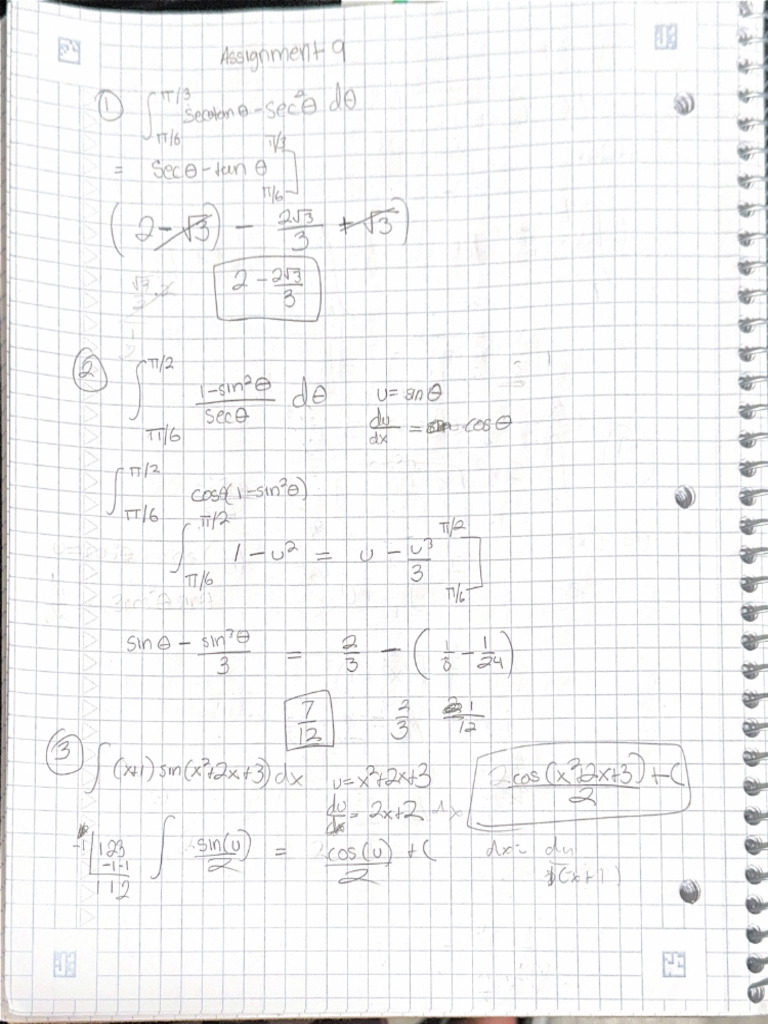 Assignment 9
① ∫_{π/6}^{π/3} secθtanθ - sec²θ dθ
= secθ - tanθ ]_{π/6}^{π/3}
(2 - √3) - 2√3/3 + √3)
2 - 2√3/3
② ∫_{π/6}^{π/2} (1-sin²θ)/secθ dθ u = sinθ
du/dx = cosθ
∫_{π/6}^{π/2} cosθ(1-sin²θ)
∫_{π/6}^{π/2} 1-u² = u - u³/3 ]_{π/6}^{π/2}
sinθ - sin³θ/3 = 2/3 - ( - 1/24)
7/12 2/3 1/12
③ ∫(x+1) sin(x²+2x+3) dx u = x²+2x+3 cos(x²+2x+3)/2 + C
du/dx = 2x+2 dx
-1 | 1 2 3 ∫ sin(u)/2 = cos(u)/2 + C dx = du/(x+1)
-1 -1
1 1 2